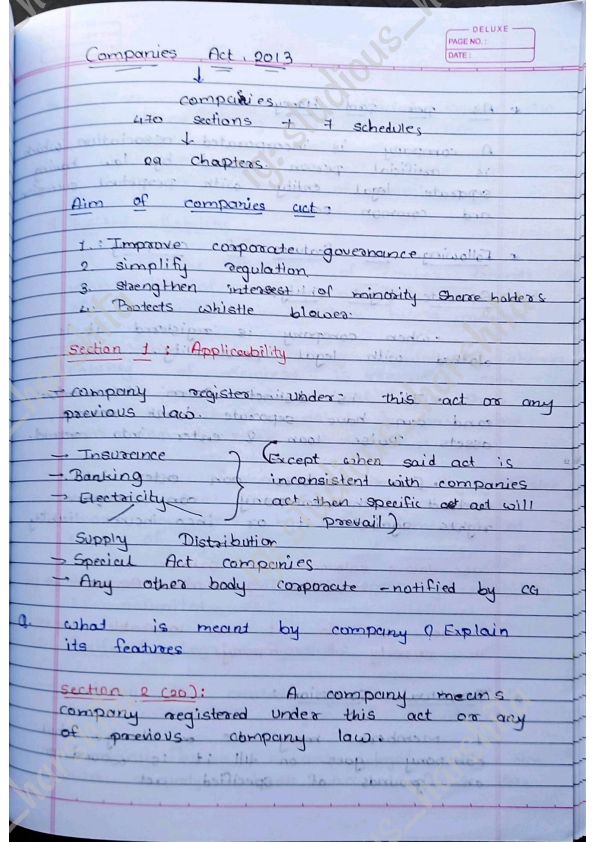 DELUXE
PAGE NO.:
DATE:
Companies Act, 2013
↓
companies
470 sections + 7 schedules
↓
09 chapters.
Aim of companies act:
1. Improve corporate governance
2. simplify regulation
3. strengthen interest of minority share holders
4. Protects whistle blower.
Section 1 : Applicability
→ company register under this act or any
previous law.
→ Insurance
→ Banking
→ Electricity
(Except when said act is
inconsistent with companies
act then specific act will
prevail)
Supply Distribution
→ Special Act companies
→ Any other body corporate - notified by CG
Q. what is meant by company? Explain
its features
Section 2 (20): A company means
company registered under this act or any
of previous company law.
ig: studious_harshita